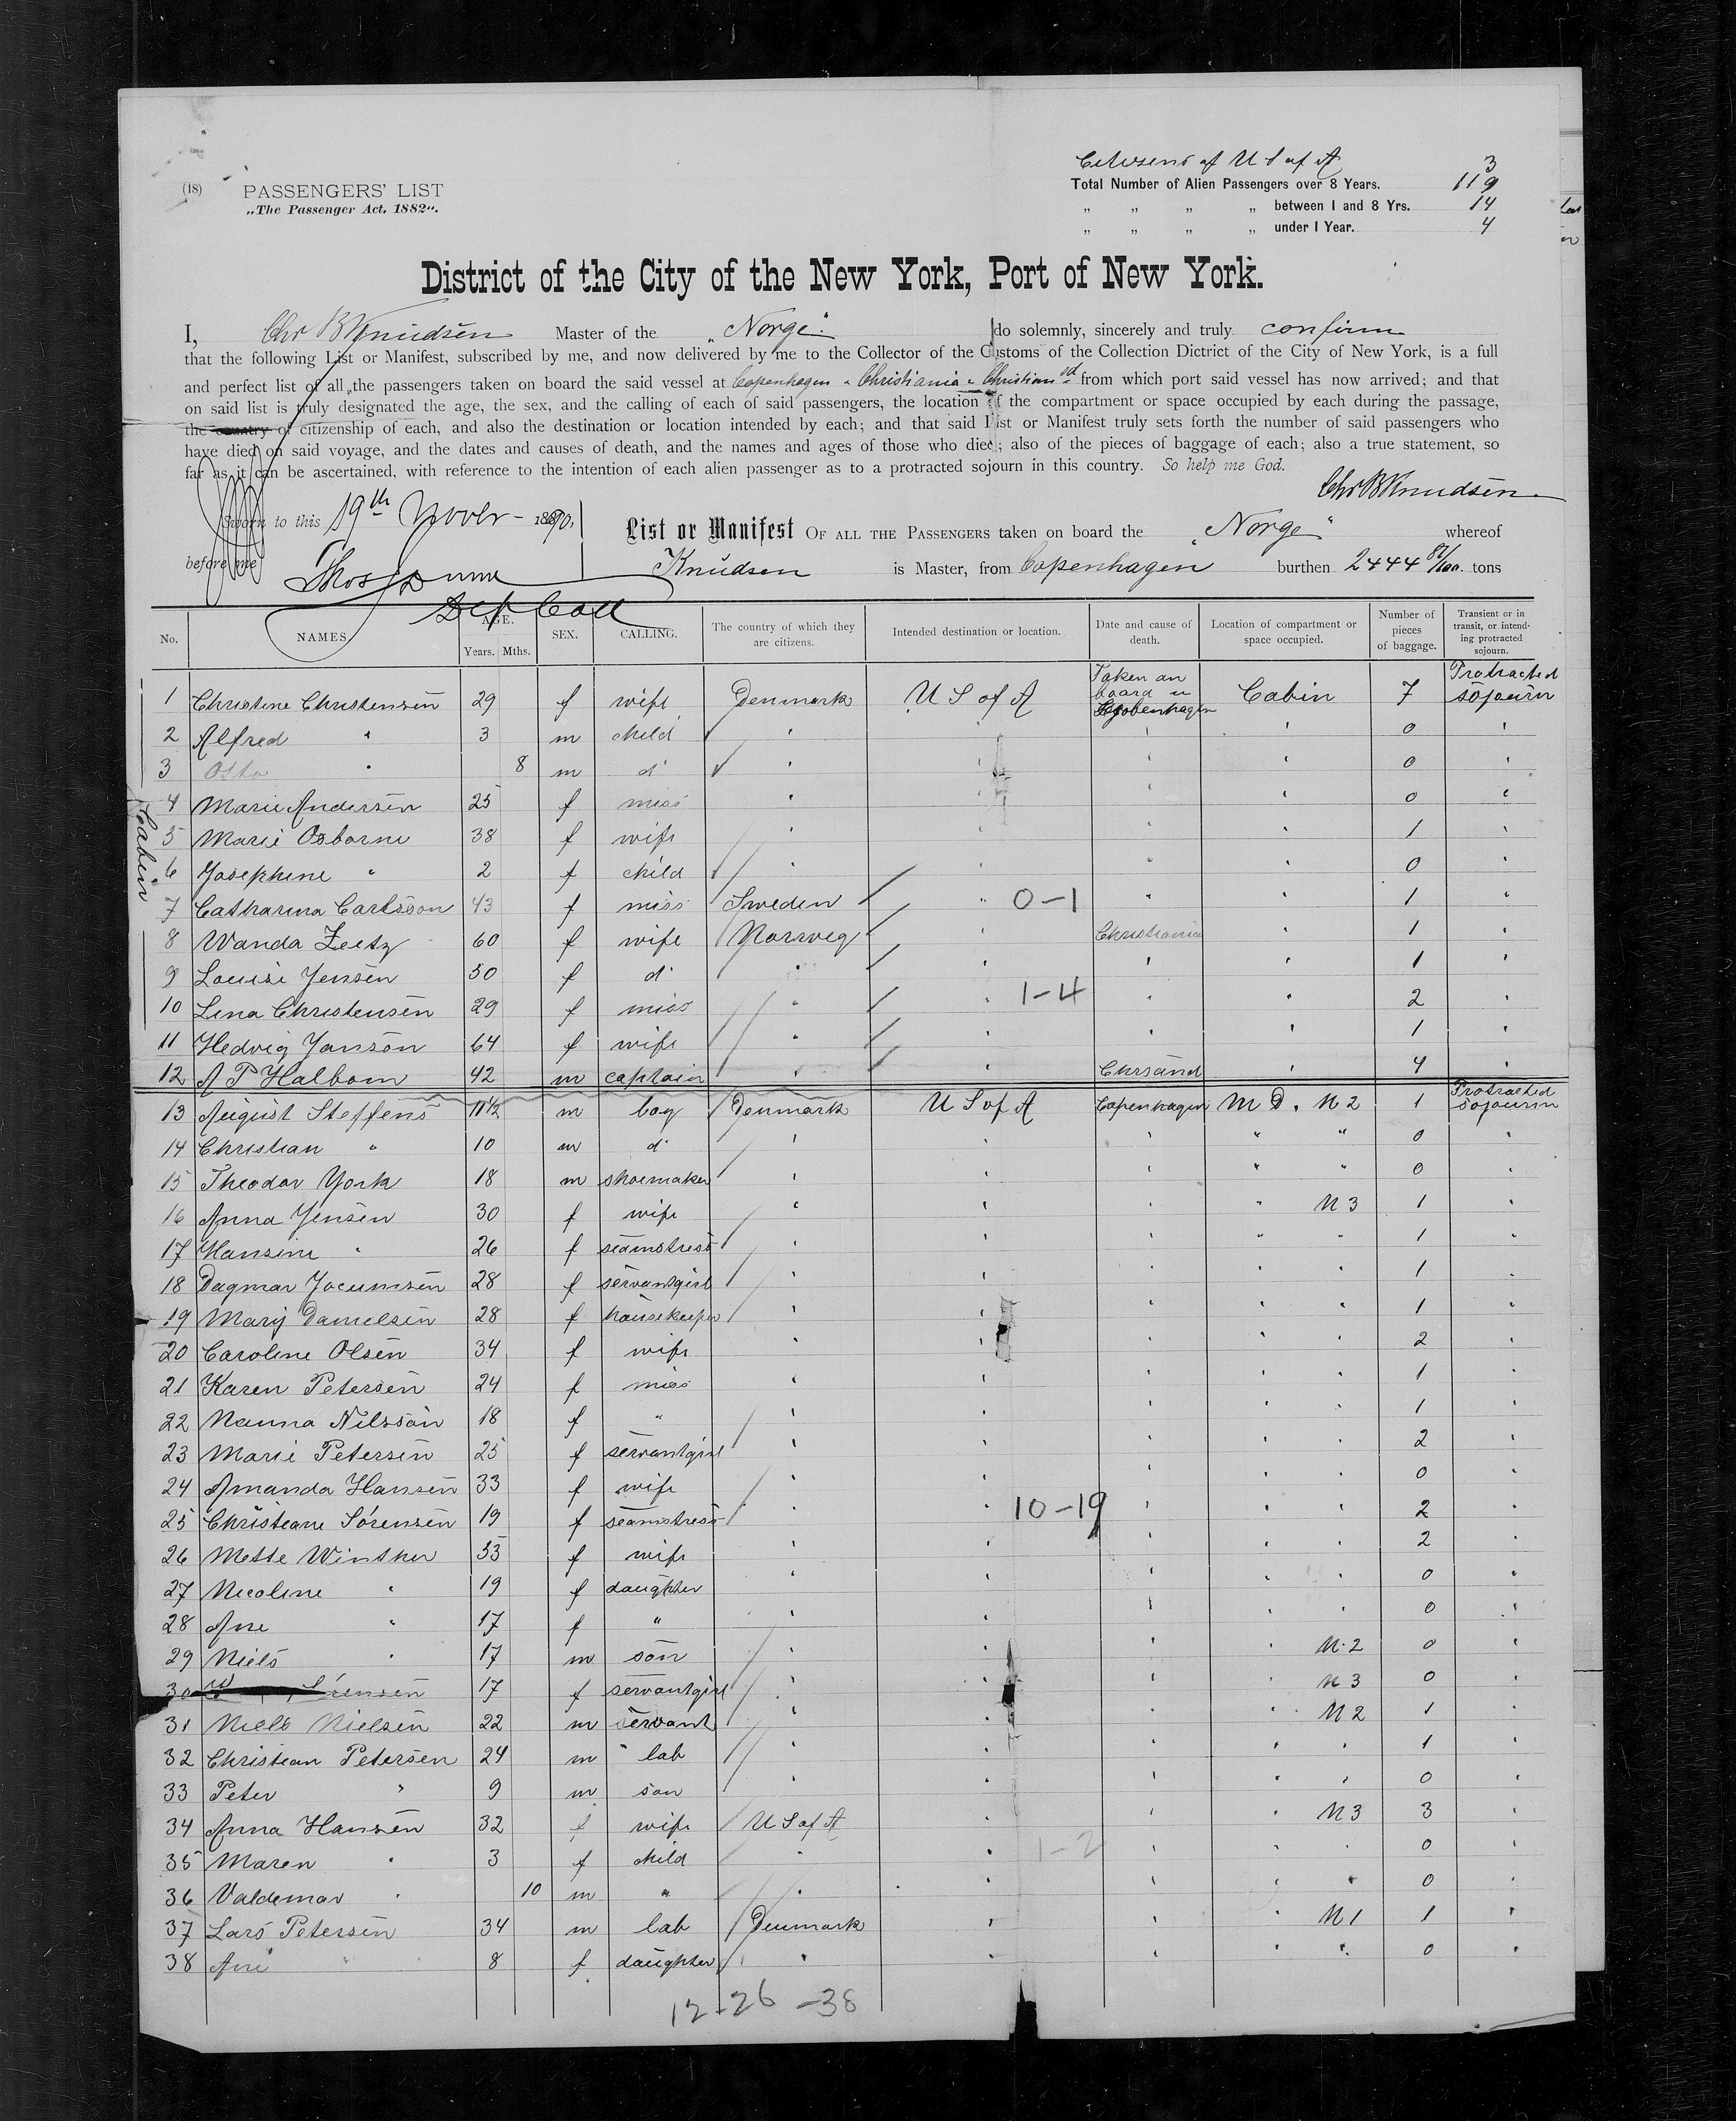 Citizens of U S of A 3
(18) PASSENGERS' LIST
„The Passenger Act, 1882".
Total Number of Alien Passengers over 8 Years. 119
„ „ „ „ between 1 and 8 Yrs. 14
„ „ „ „ under 1 Year. 4
District of the City of the New York, Port of New York.
I, Chr B Knudsen Master of the „Norge" do solemnly, sincerely and truly confirm
that the following List or Manifest, subscribed by me, and now delivered by me to the Collector of the Customs of the Collection Dictrict of the City of New York, is a full
and perfect list of all the passengers taken on board the said vessel at Copenhagen - Christiania - Christiansd from which port said vessel has now arrived; and that
on said list is truly designated the age, the sex, and the calling of each of said passengers, the location of the compartment or space occupied by each during the passage,
the country of citizenship of each, and also the destination or location intended by each; and that said List or Manifest truly sets forth the number of said passengers who
have died on said voyage, and the dates and causes of death, and the names and ages of those who died; also of the pieces of baggage of each; also a true statement, so
far as it can be ascertained, with reference to the intention of each alien passenger as to a protracted sojourn in this country. So help me God.
Chr B Knudsen
Sworn to this 19th Novbr 1890,
before me
Thos Dunn
Dep Coll
List or Manifest OF ALL THE PASSENGERS taken on board the „Norge" whereof
Knudsen is Master, from Copenhagen burthen 2444 tons
No. NAMES. AGE. Years. Mths. SEX. CALLING. The country of which they are citizens. Intended destination or location. Date and cause of death. Location of compartment or space occupied. Number of pieces of baggage. Transient or in transit, or intending protracted sojourn.
Cabin
1 Christine Christensen 29 f wife Denmark U S of A Taken on board in Copenhagen Cabin 7 Protracted sojourn
2 Alfred " 3 m child " " " " 0 "
3 Otto " 8 m d° " " " " 0 "
4 Marie Andersen 25 f miss " " " " 0 "
5 Marie Osborne 38 f wife " " " " 1 "
6 Josephine " 2 f child " " " " 0 "
7 Catharina Carlsson 43 f miss Sweden " 0-1 " " 1 "
8 Wanda Zeetz 60 f wife Norweg " Christiania " 1 "
9 Louise Jensen 50 f d° " " " " 1 "
10 Lina Christensen 29 f miss " " 1-4 " " 2 "
11 Hedvig Janson 64 f wife " " " " 1 "
12 A P Halbom 42 m captain " " Chrsand " 4 "
13 August Steffens 11½ m boy Denmark U S of A Copenhagen M D. N 2 1 Protracted sojourn
14 Christian " 10 m d° " " " " " 0 "
15 Theodor York 18 m shoemaker " " " " " 0 "
16 Anna Jensen 30 f wife " " " " N 3 1 "
17 Hansine " 26 f seamstress " " " " " 1 "
18 Dagmar Jocumsen 28 f servantgirl " " " " " 1 "
19 Mary Danielsen 28 f housekeeper " " " " " 1 "
20 Caroline Olsen 34 f wife " " " " " 2 "
21 Karen Petersen 24 f miss " " " " " 1 "
22 Nanna Nilsson 18 f " " " " " " 1 "
23 Marie Petersen 25 f servantgirl " " " " " 2 "
24 Amanda Hansen 33 f wife " " " " " 0 "
25 Christiane Sörensen 19 f seamstress " " 10-19 " " " 2 "
26 Mette Winther 53 f wife " " " " " 2 "
27 Nicoline " 19 f daughter " " " " " 0 "
28 Ane " 17 f " " " " " " 0 "
29 Niels " 17 m son " " " " N 2 0 "
30 Sörensen 17 f servantgirl " " " " N 3 0 "
31 Niels Nielsen 22 m servant " " " " N 2 1 "
32 Christian Petersen 24 m lab " " " " " 1 "
33 Peter " 9 m son " " " " " 0 "
34 Anna Hansen 32 f wife U S of A " " " N 3 3 "
35 Maren " 3 f child " " 1-2 " " " 0 "
36 Valdemar " 10 m " " " " " " 0 "
37 Lars Petersen 34 m lab Denmark " " " N 1 1 "
38 Ane " 8 f daughter " " " " " 0 "
12-26-38